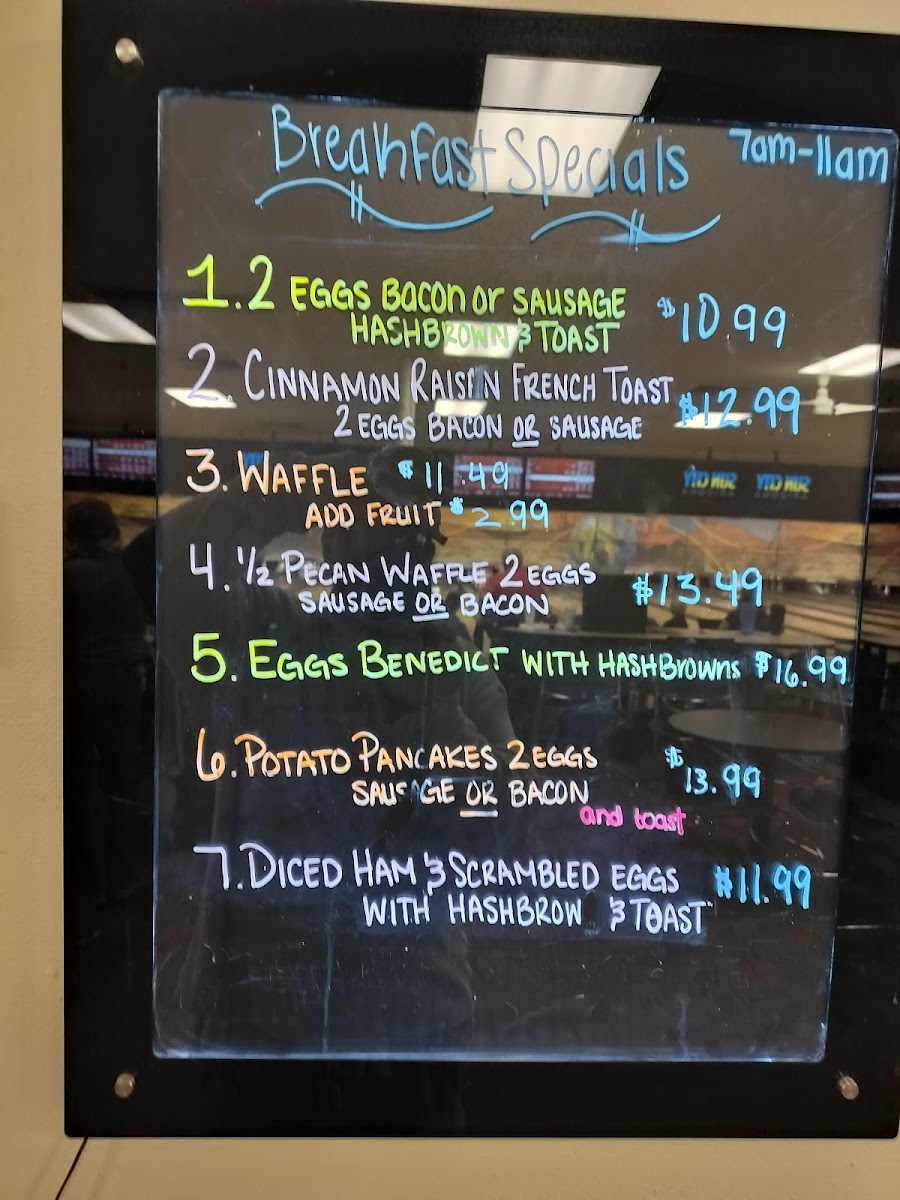 Breakfast Specials 7am-11am
1. 2 EGGS BACON or SAUSAGE $10.99
HASHBROWN & TOAST
2. CINNAMON RAISIN FRENCH TOAST $12.99
2 EGGS BACON OR SAUSAGE
3. WAFFLE $11.49
ADD FRUIT $2.99
4. 1/2 PECAN WAFFLE 2 EGGS $13.49
SAUSAGE OR BACON
5. EGGS BENEDICT WITH HASHBROWNS $16.99
6. POTATO PANCAKES 2 EGGS $13.99
SAUSAGE OR BACON
and toast
7. DICED HAM & SCRAMBLED EGGS $11.99
WITH HASHBROW & TOAST